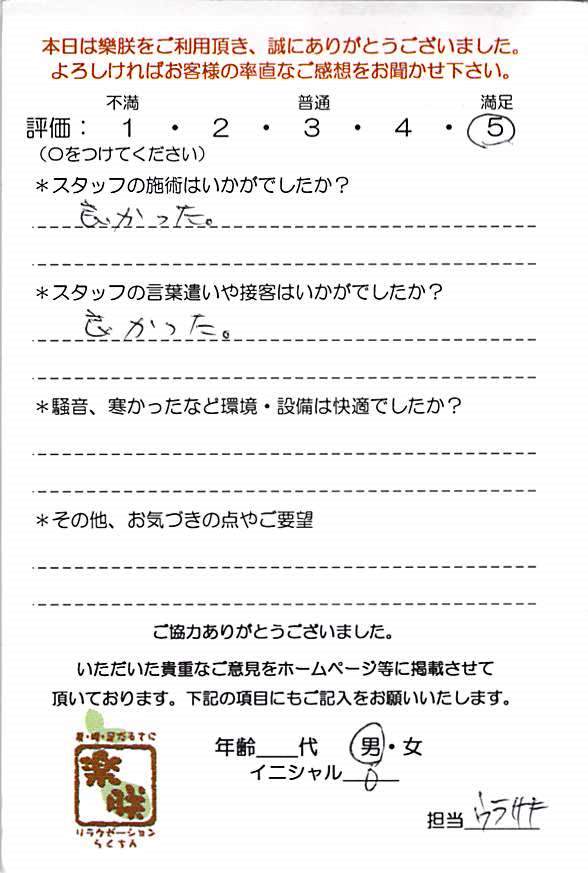 本日は樂朕をご利用頂き、誠にありがとうございました。
よろしければお客様の率直なご感想をお聞かせ下さい。
不満 普通 満足
評価： 1 ・ 2 ・ 3 ・ 4 ・ 5
（〇をつけてください）
＊スタッフの施術はいかがでしたか？
良かった。
＊スタッフの言葉遣いや接客はいかがでしたか？
良かった。
＊騒音、寒かったなど環境・設備は快適でしたか？
＊その他、お気づきの点やご要望
ご協力ありがとうございました。
いただいた貴重なご意見をホームページ等に掲載させて
頂いております。下記の項目にもご記入をお願いいたします。
年齢＿＿代 男・女
イニシャル O
担当 ウラサキ
樂朕
リラクゼーション
らくちん